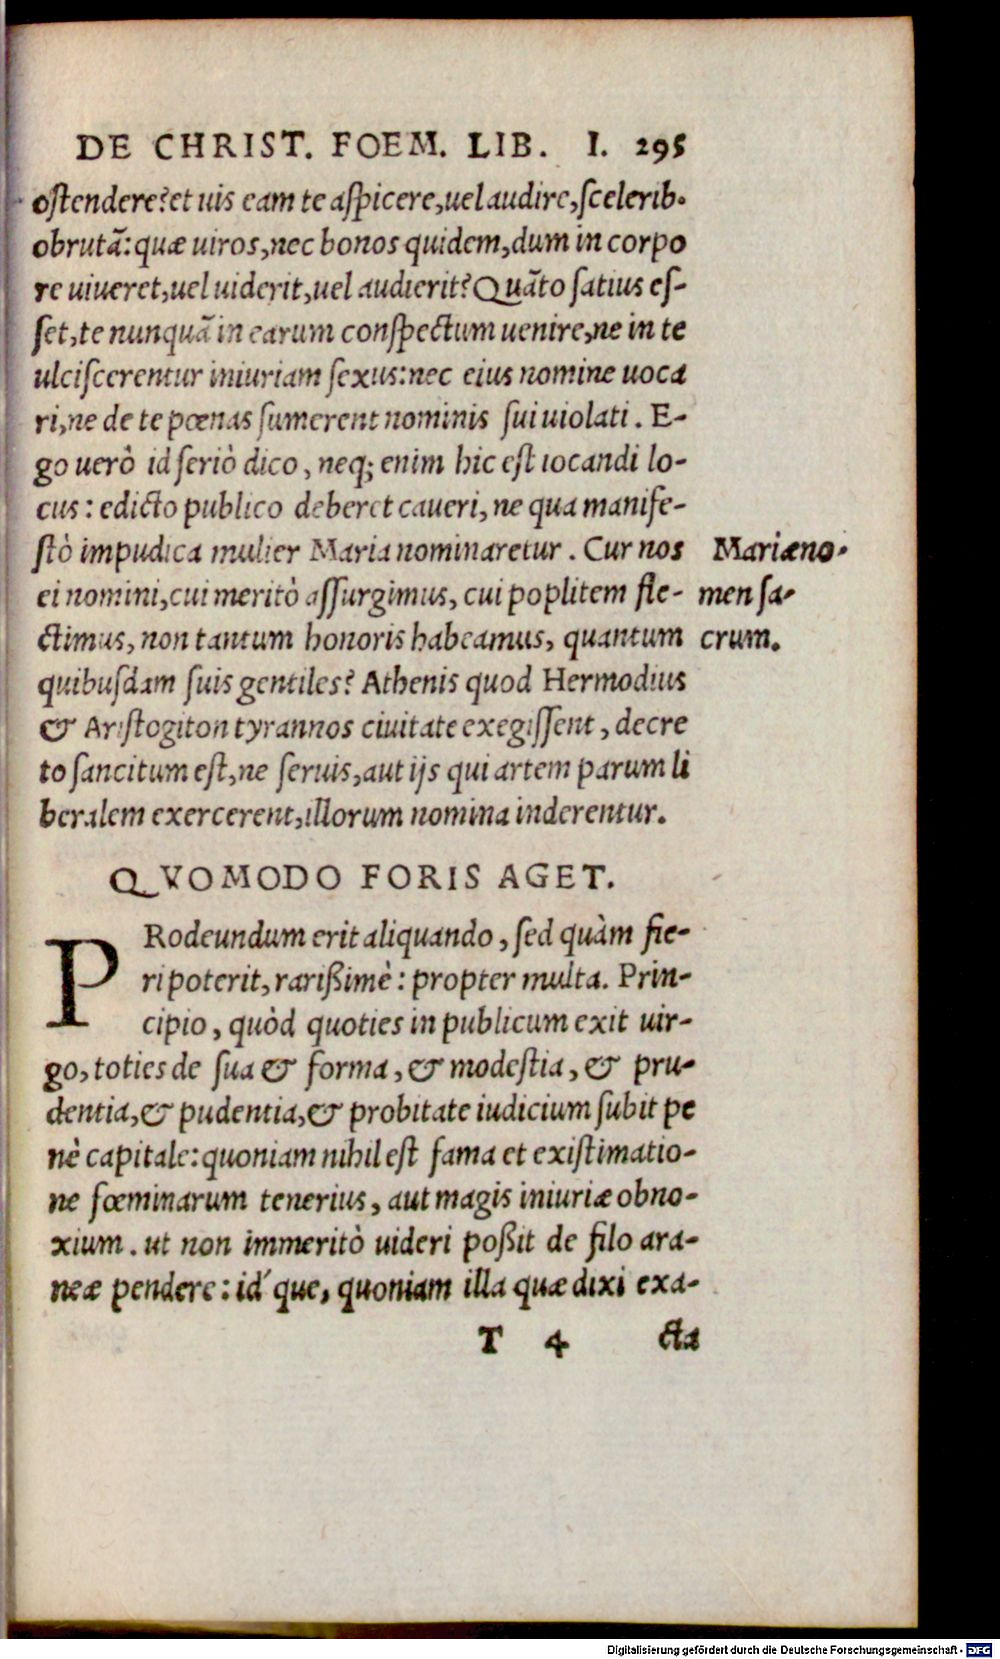 DE CHRIST. FOEM. LIB. I. 295
oſtendere? et uis eam te aſpicere, uel audire, ſcelerib.
obrutã: quæ uiros, nec bonos quidem, dum in corpo
re uiueret, uel uiderit, uel audierit? Quãto ſatius eſ-
ſet, te nunquã in earum conſpectum uenire, ne in te
ulciſcerentur iniuriam ſexus: nec eius nomine uoca
ri, ne de te pœnas ſumerent nominis ſui uiolati. E-
go uerò id ſeriò dico, neq; enim hic eſt iocandi lo-
cus: edicto publico deberet caueri, ne qua manife-
ſtò impudica mulier Maria nominaretur. Cur nos
ei nomini, cui meritò aſſurgimus, cui poplitem fle-
ctimus, non tantum honoris habeamus, quantum
quibuſdam ſuis gentiles? Athenis quod Hermodius
& Ariſtogiton tyrannos ciuitate exegiſſent, decre
to ſancitum eſt, ne ſeruis, aut ijs qui artem parum li
beralem exercerent, illorum nomina inderentur.
Mariæ no-
men ſa-
crum.
QVOMODO FORIS AGET.
PRodeundum erit aliquando, ſed quàm fie-
ri poterit, rarißimè: propter multa. Prin-
cipio, quòd quoties in publicum exit uir-
go, toties de ſua & forma, & modeſtia, & pru-
dentia, & pudentia, & probitate iudicium ſubit pe
nè capitale: quoniam nihil eſt fama et exiſtimatio-
ne fœminarum tenerius, aut magis iniuriæ obno-
xium. ut non immeritò uideri poßit de filo ara-
neæ pendere: id́ que, quoniam illa quæ dixi exa-
T 4 cta
Digitalisierung gefördert durch die Deutsche Forschungsgemeinschaft - DFG